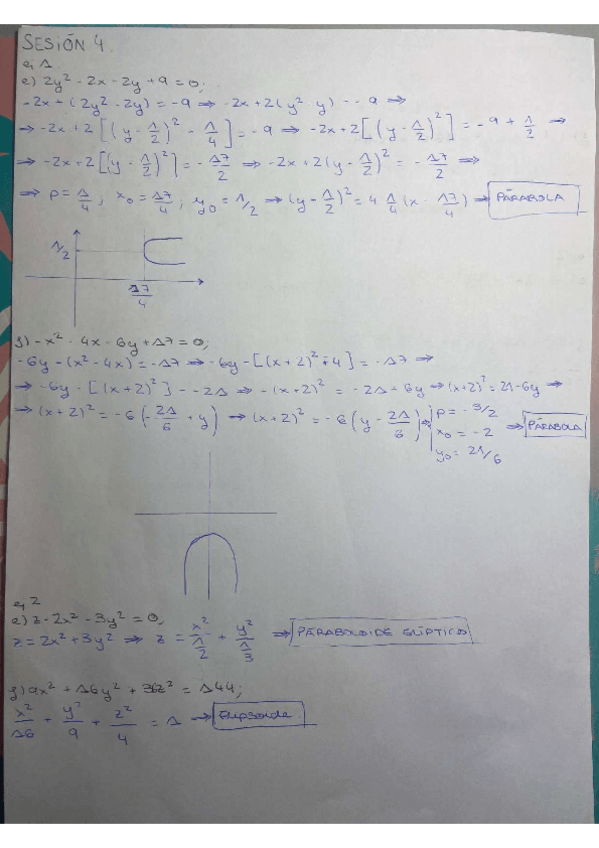 SESIÓN 4.
ej 1
e) 2y² - 2x - 2y + 9 = 0;
-2x + (2y² - 2y) = -9 ⇒ -2x + 2(y² - y) = -9 ⇒
⇒ -2x + 2[(y - 1/2)² - 1/4] = -9 ⇒ -2x + 2[(y - 1/2)²] = -9 + 1/2 ⇒
⇒ -2x + 2[(y - 1/2)²] = -17/2 ⇒ -2x + 2(y - 1/2)² = -17/2 ⇒
⇒ p = 1/4 ; x₀ = 17/4 ; y₀ = 1/2 ⇒ (y - 1/2)² = 4 1/4 (x - 17/4) ⇒ PÁRABOLA
1/2
17/4
f) -x² - 4x - 6y + 17 = 0;
-6y - (x² - 4x) = -17 ⇒ -6y - [(x+2)² + 4] = -17 ⇒
⇒ -6y - [(x+2)²] = -21 ⇒ -(x+2)² = -21 + 6y ⇒ (x+2)² = 21 - 6y ⇒
⇒ (x+2)² = -6(-21/6 + y) ⇒ (x+2)² = -6(y - 21/6) ⇒ p = -3/2 ⇒ PÁRABOLA
x₀ = -2
y₀ = 21/6
ej 2
e) z - 2x² - 3y² = 0;
z = 2x² + 3y² ⇒ z = x²/(1/2) + y²/(1/3) ⇒ PARABOLOIDE ELÍPTICO
f) 9x² + 16y² + 36z² = 144;
x²/16 + y²/9 + z²/4 = 1 ⇒ Elipsoide